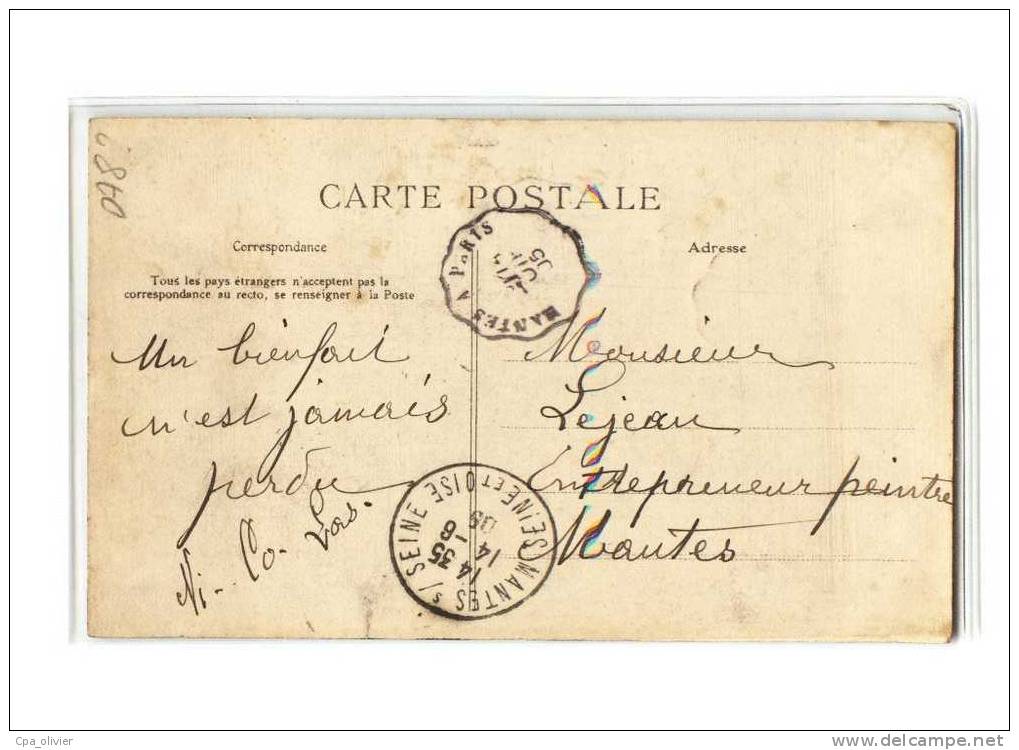 078
CARTE POSTALE
Correspondance
Adresse
Tous les pays étrangers n'acceptent pas la
correspondance au recto, se renseigner à la Poste
MANTES A PARIS
Un bienfait
n'est jamais
perdu
Monsieur
Lejeau
Entrepreneur peintre
Mantes
MANTES s/ SEINE
SEINE ET OISE
14 35
14 8
09
Cpa_olivier
www.delcampe.net